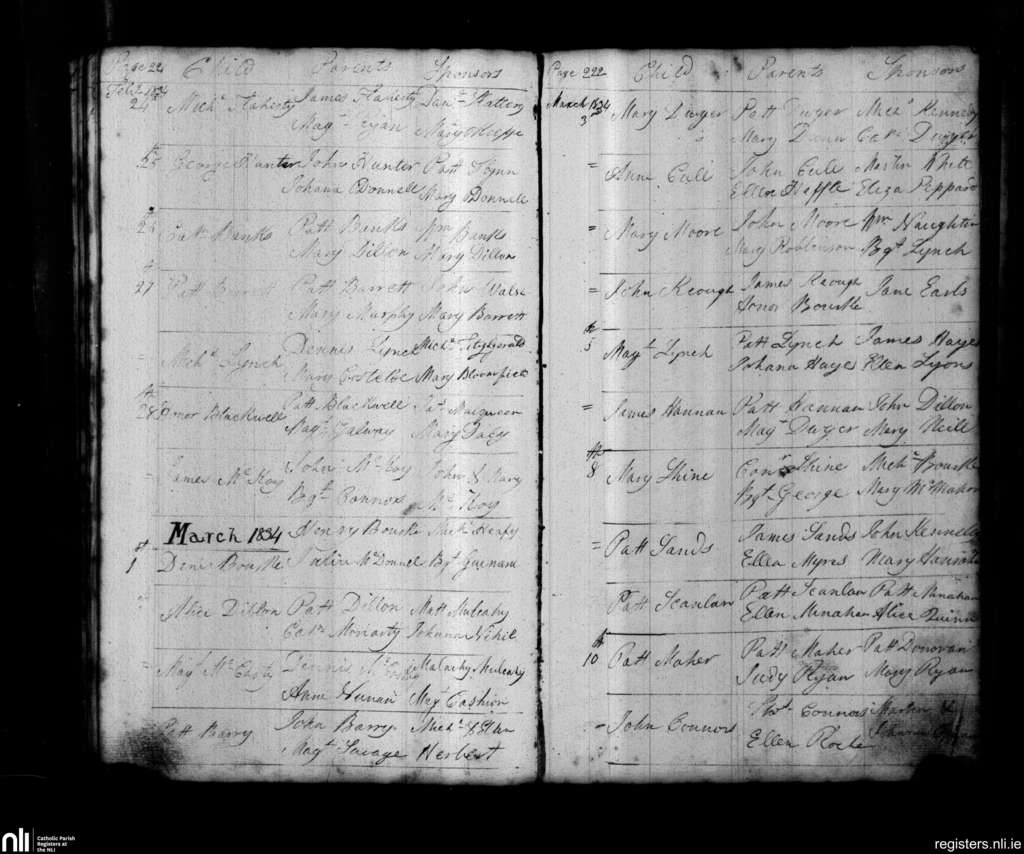 Page 22 Child Parents Sponsors
Feb 1834
24 Michl Flaherty James Flaherty Danl Slattery
Magt Ryan Mary Keeffe
25 George Hunter John Hunter Patt Flynn
Johana Donnell Mary Donnell
26th Patt Banks Patt Banks Wm Banks
Mary Dillon Mary Dillon
27 Patt Barrett Patt Barrett John Walsh
Mary Murphy Mary Barrett
Michl Lynch Dennis Lynch Michl Fitzgerald
Mary Costeloe Mary Bloomfield
28th Honor Blackwell Patt Blackwell
Magt Galway Mary Daly
= James McKoy John McKoy John & Mary
Bgt Connors McKoy
March 1834 Henry Bourke Michl Heafy
1st Dens Bourke McDonnel Bgt Guinane
Alice Dillon Patt Dillon Matt Mulcahy
Cathe Moriarty Johanna Nihil
= Magt McCarty Dennis McCarty Malachy Mulcahy
Anne Hunan Magt Cashion
Patt Barry John Barry Michl & Ellen
Magt Savage Herbert
Page 222 Child Parents Sponsors
March 1834
3rd Mary Dwyer Patt Dwyer Michl Kennedy
Mary Dunn Cathe Dwyer
= Anne Cule John Cule Martin White
Ellen Keeffe Eliza Peppard
= Mary Moore John Moore Wm Naughten
Mary Robbinson Bgt Lynch
= John Keough James Keough Jane Earls
Honor Bourke
5th Magt Lynch Patt Lynch James Hayes
Johana Hayes Ellen Lyons
= James Hannan Patt Hannan John Dillon
Magt Dwyer Mary Neill
8th Mary Shine Conr Shine Michl Bourke
Bgt George Mary McMahon
= Patt Sands James Sands John Kennelly
Ellen Myres Mary
Patt Scanlan Patt Scanlan Patt Minahan
Ellen Minahan Alice Quinn
10th Patt Maher Patt Maher Patt Donovan
Judy Ryan Mary Ryan
= John Connors Thos Connors Martin &
Ellen Roche Johanna
nli Catholic Parish
Registers at
the NLI
registers.nli.ie